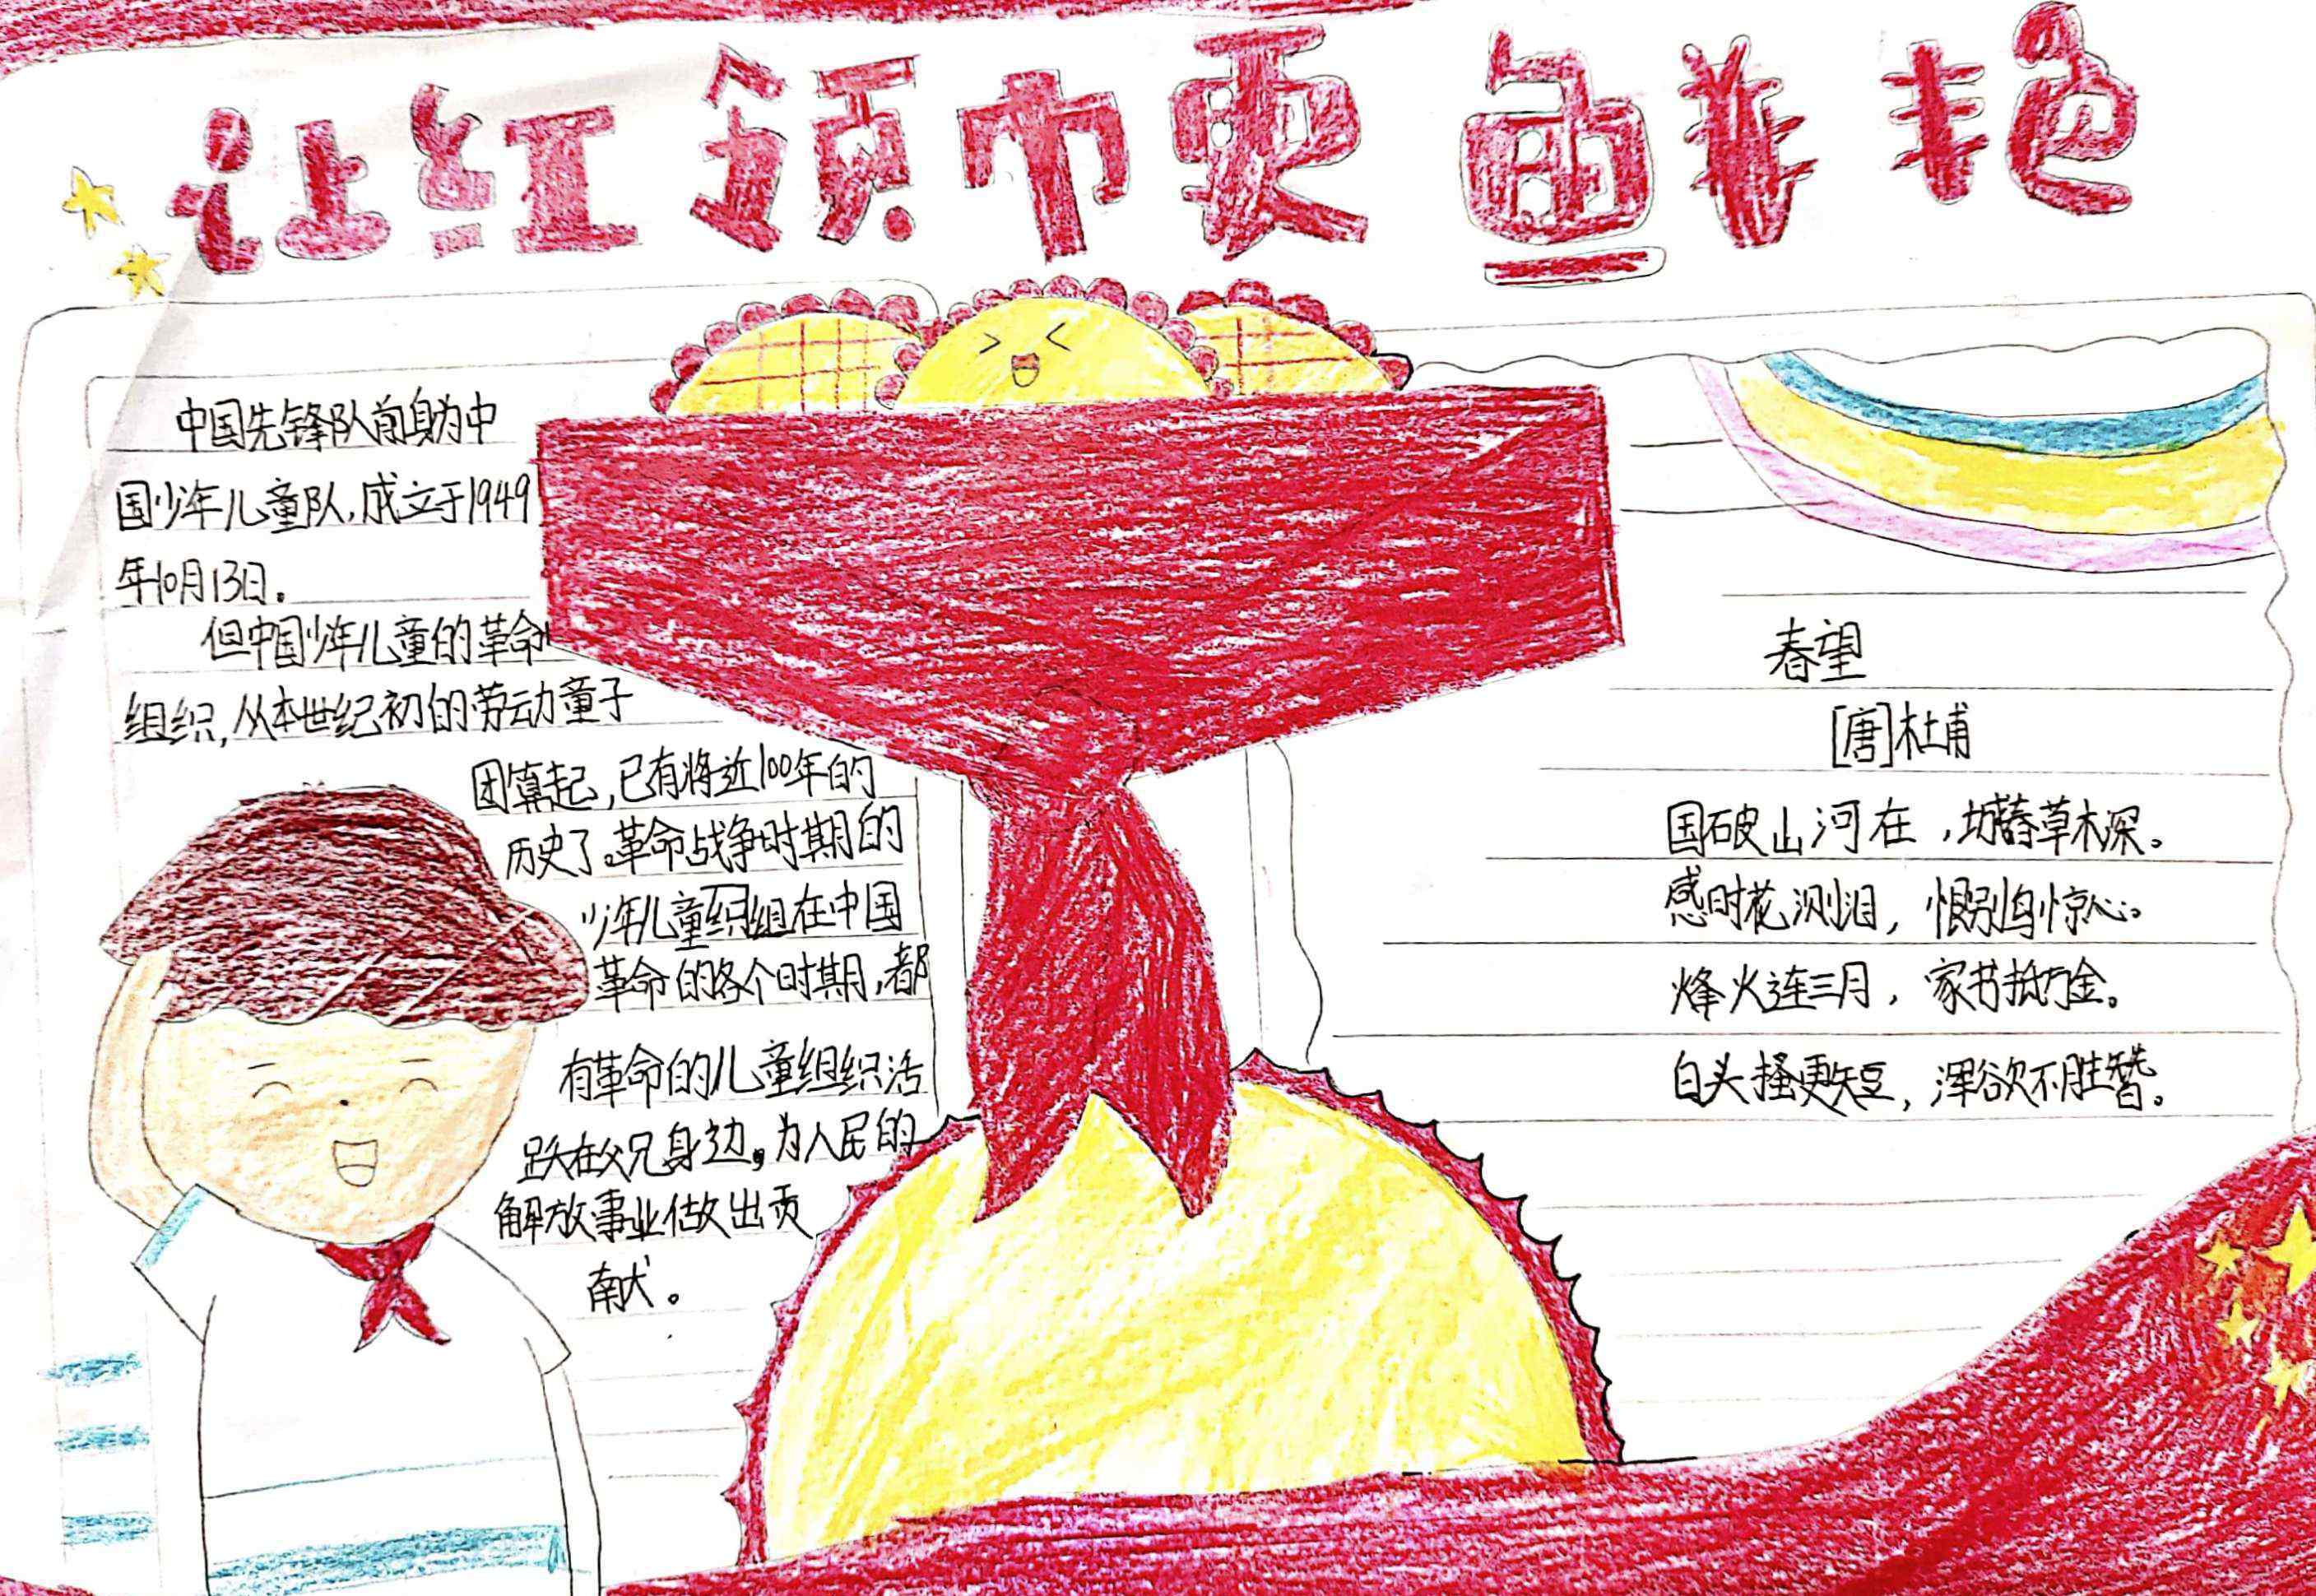 让红领巾更鲜艳
中国先锋队前身为中
国少年儿童队,成立于1949
年10月13日。
但中国少年儿童的革命
组织,从本世纪初的劳动童子
团算起,已有将近100年的
历史了。革命战争时期的
少年儿童织组在中国
革命的各个时期,都
有革命的儿童组织活
跃在父兄身边。为人民的
解放事业做出贡
献。
春望
[唐]杜甫
国破山河在,城春草木深。
感时花测泪,恨别鸟惊心。
烽火连三月,家书抵万金。
白头搔更短,浑欲不胜簪。